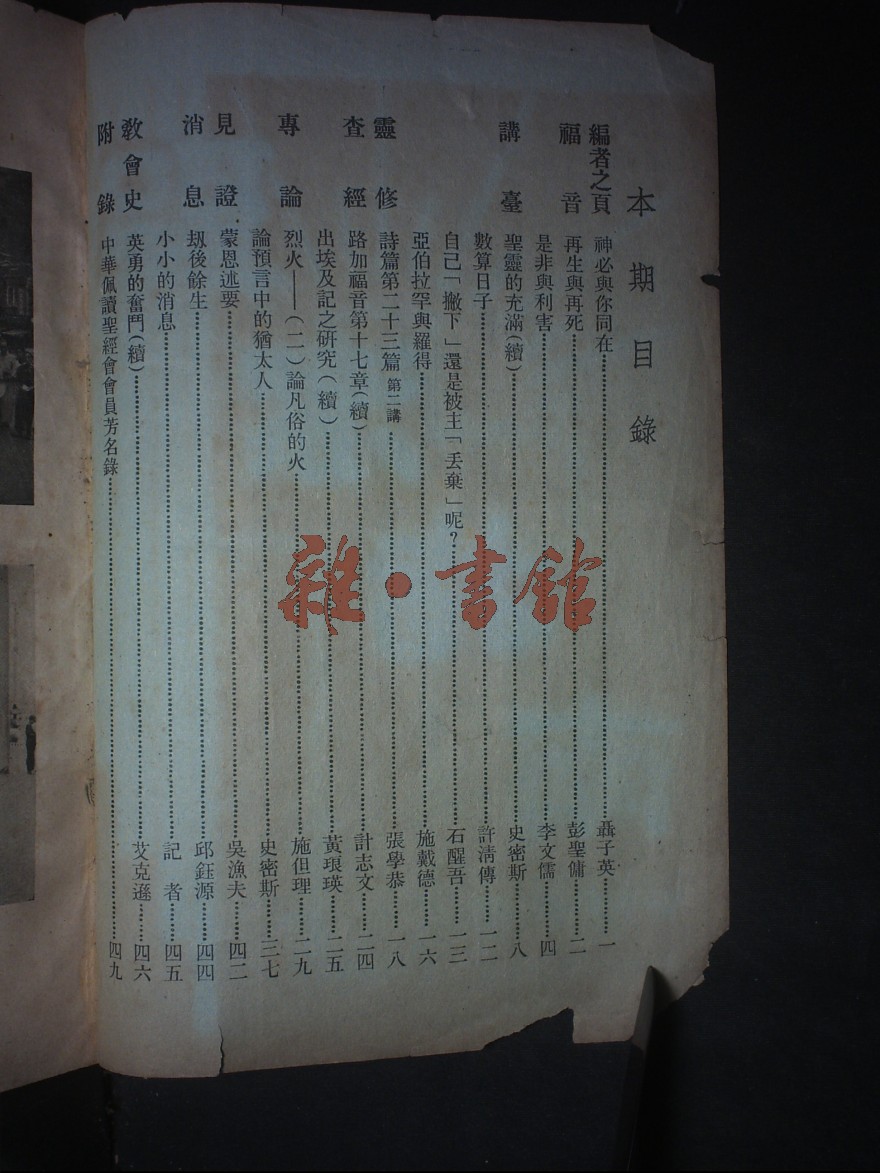 本期目錄
編者之頁 神必與你同在……聶子英……一
福音 再生與再死……彭聖傭……二
是非與利害……李文儒……四
講臺 聖靈的充滿(續)……史密斯……八
數算日子……許淸傳……一二
自己「撇下」還是被主「丢棄」呢?……石醒吾……一三
亞伯拉罕與羅得……施戴德……一六
靈修 詩篇第二十三篇 第二講……張學恭……一八
查經 路加福音第十七章(續)……計志文……二四
出埃及記之研究(續)……黃琅瑛……二五
專論 烈火——(二)論凡俗的火……施但理……二九
論預言中的猶太人……史密斯……三七
見證 蒙恩述要……吳漁夫……四二
劫後餘生……邱鈺源……四四
消息 小小的消息……記者……四五
教會史 英勇的奮鬥(續)……艾克遜……四六
附錄 中華佩讀聖經會會員芳名錄……四九
雜·書館